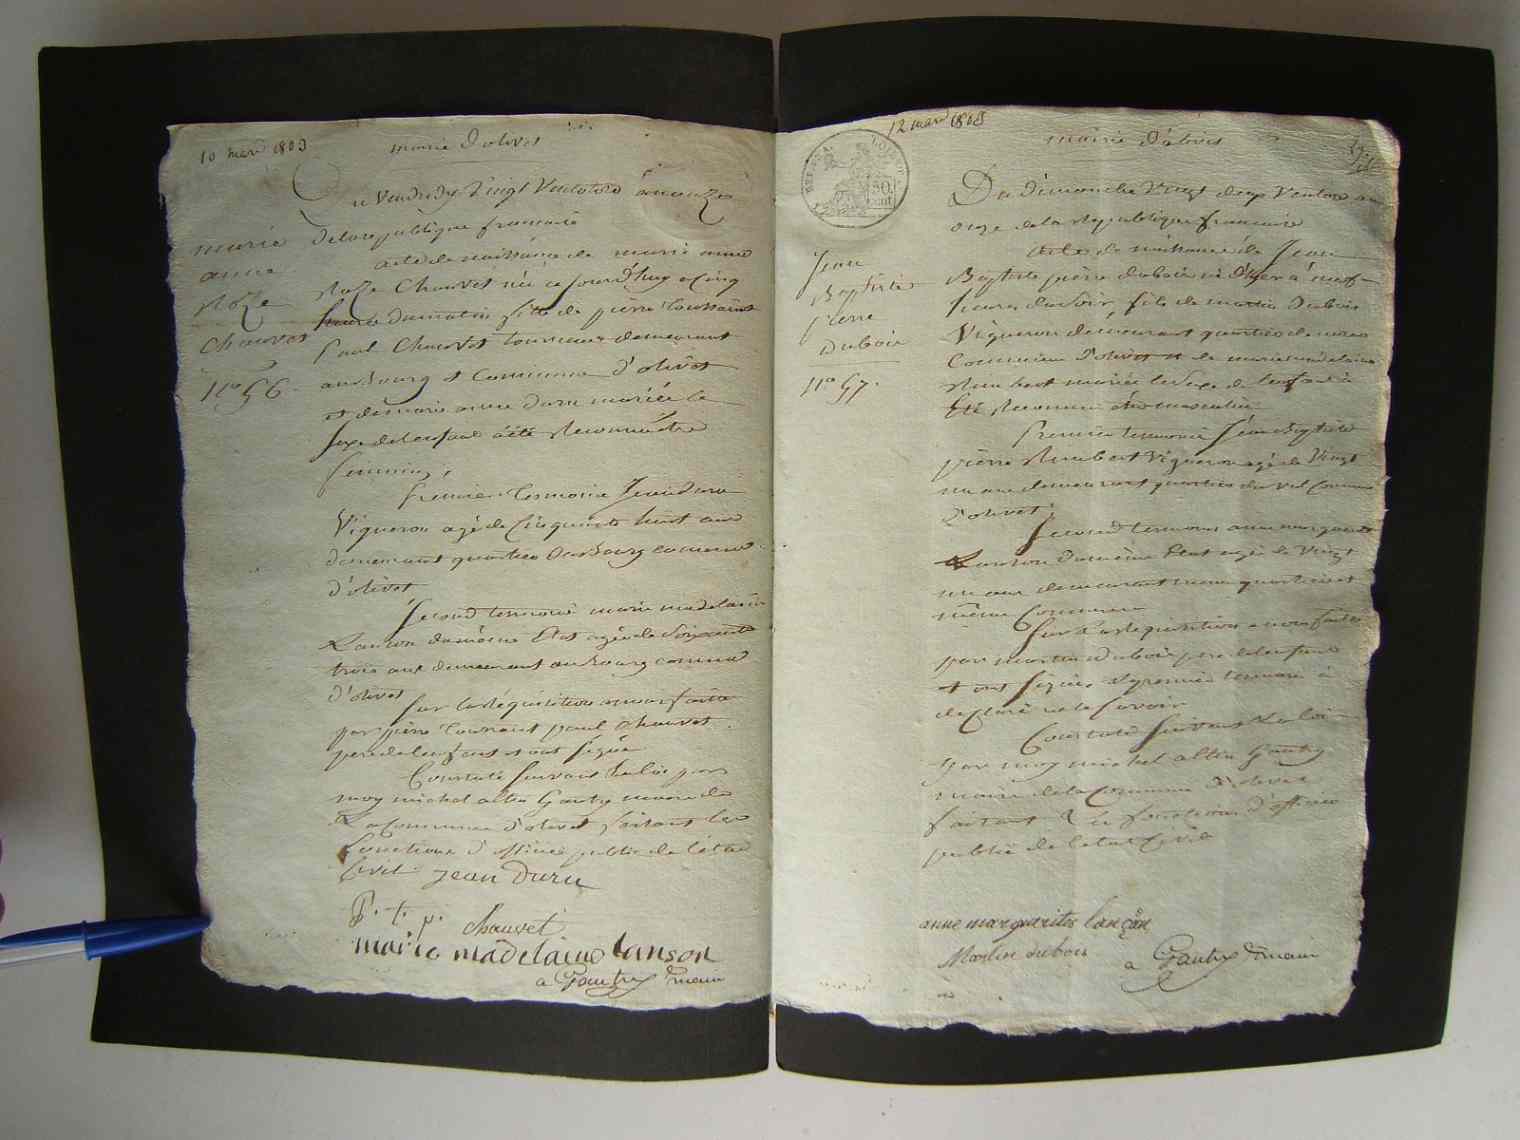 10 mars 1803
mairie d'olivet
Du Vendredy Vingt Ventose an onze
de la republique francaise
marie
anne
Roze
Chauvet
no 56.
acte de naissance de marie anne
Roze Chauvet née ce jourd'huy a Cinq
heures du matin fille de pierre toussaint
paul Chauvet tourneur demeurant
au Bourg et Commune d'olivet
et de marie anne duru mariée le
sexe de l'enfant a été Reconnu être
feminin,
premier temoin Jean duru
Vigneron agé de Cinquante huit ans
demeurant quartier du Bourg commune
d'olivet
second temoin marie madelaine
Lanson du même Etat agée de Soixante
trois ans demeurant au Bourg commune
d'olivet
sur la réquisition a nous faite
par pierre toussaint paul Chauvet
pere de l'enfant et ont signé
Constaté suivant La loi par
moy michel alten Gautry maire de
La Commune d'olivet faisant les
fonctions d'officier public de l'état
Civil jean Duru
P. t. p. chauvet
marie madelaine lanson
a Gautry maire
12 mars 1803
mairie d'olivet
REP. FRA.
50
cent
Du dimanche Vingt deux Ventose an
onze de la Republique francaise
Jean
Baptiste
pierre
Dubois
no 57.
acte de naissance de Jean
Baptiste pierre dubois né d'hier à neuf
heures du soir, fils de martin Dubois
Vigneron demeurant quartier de
Commune d'olivet et de marie madelaine
Rimbert mariée le Sexe de l'enfant à
Eté Reconnu être masculin
premier temoin Jean Baptiste
pierre Rimbert Vigneron agé de Vingt
un ans demeurant quartier du val Commune
d'olivet;
second temoin anne marguerite
Lanson du même Etat agée de Vingt
un ans demeurant meme quartier et
même Commune
sur La requisition a nous faite
par martin Dubois pere de l'enfant
et ont signé, le premier temoin à
declaré ne le savoir
Constaté suivant La loi
par moy michel alten Gautry
maire de la Commune d'olivet
faisant Les fonctions d'officier
public de l'etat Civil
anne margueritte lançon
Martin dubois
a Gautry maire